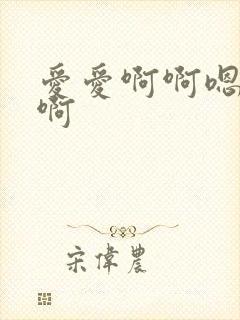 爱爱啊啊嗯
啊
宋偉農